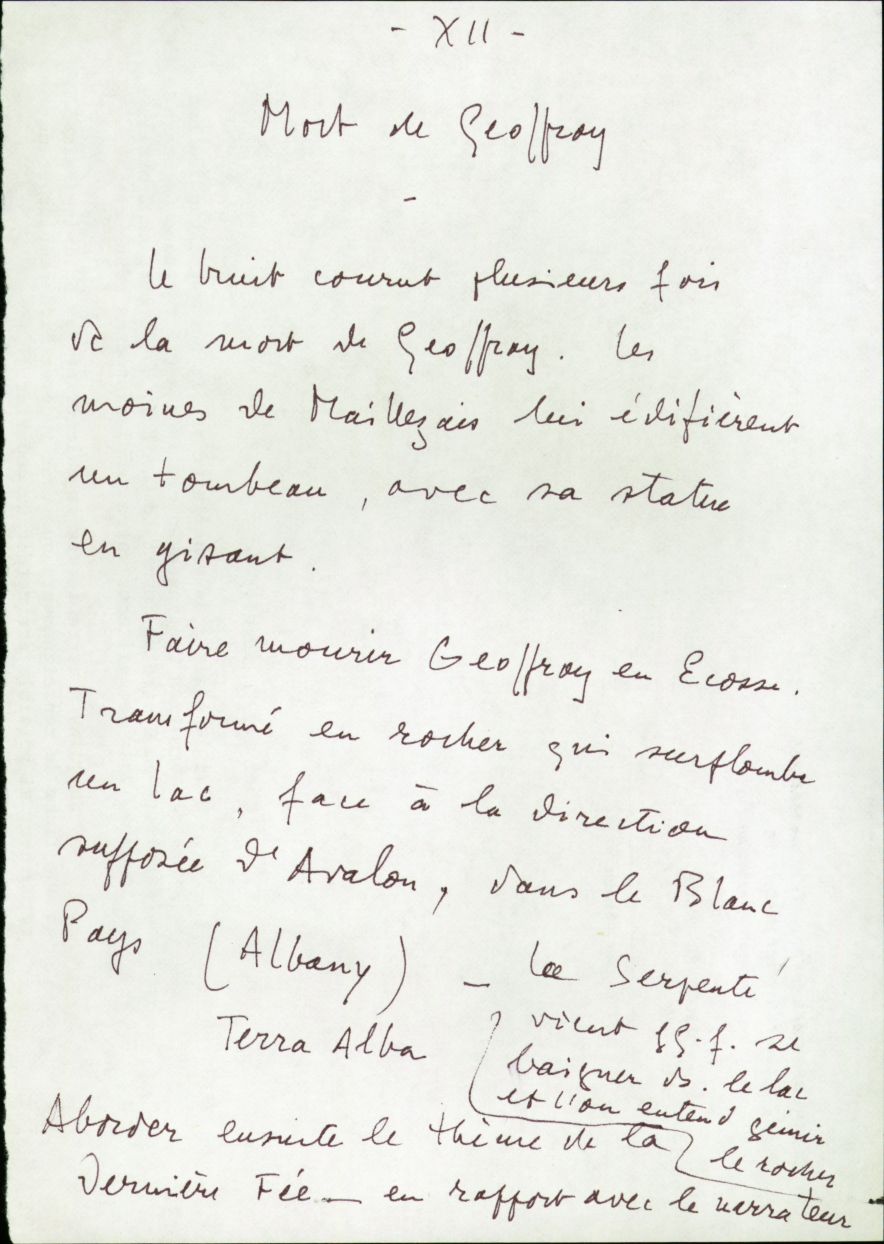 - XII -
Mort de Geoffroy
-
Le bruit courut plusieurs fois
de la mort de Geoffroy. Les
moines de Maillezais lui édifièrent
un tombeau, avec sa statue
en gisant.
Faire mourir Geoffroy en Ecosse.
Transformé en rocher qui surplombe
un lac, face à la direction
supposée d'Avalon, dans le Blanc
Pays (Albany) - La Serpente
Terra Alba
vient qq. f. se
baigner ds. le lac
et l'on entend gémir
le rocher
Aborder ensuite le thème de la
Dernière Fée - en rapport avec le narrateur